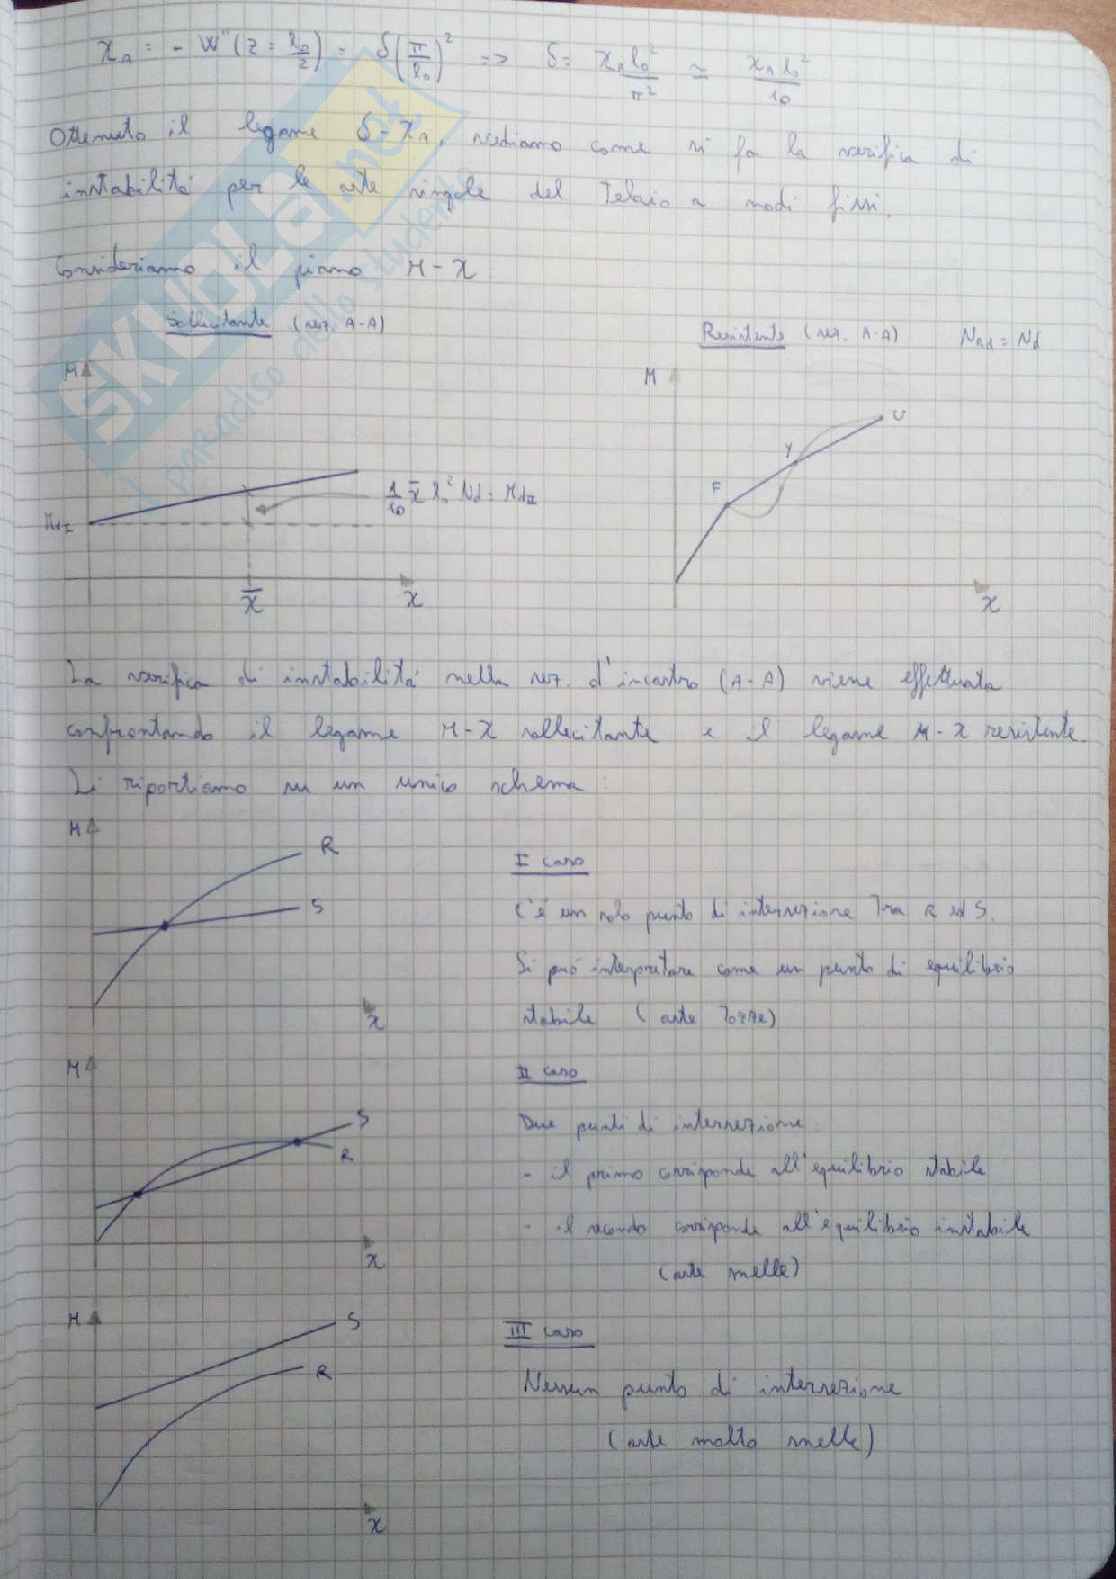 χ_A = - W''(z = l_0/2) = δ(π/l_0)² => δ = χ_A l_0²/π² ≃ χ_A l_0²/10
Ottenuto il legame δ-χ_A, vediamo come si fa la verifica di
instabilità per le aste singole del Telaio a nodi fissi.
Consideriamo il piano M-χ
Sollecitante (sez. A-A)
Resistente (sez. A-A) N_Rd = N_d
M
M
U
Y
F
1/10 χ̄ l_0² N_d = M_d2
M_dI
χ̄
χ
χ
La verifica di instabilità nella sez. d'incastro (A-A) viene effettuata
confrontando il legame M-χ sollecitante e il legame M-χ resistente.
Li riportiamo su un unico schema:
M
R
S
χ
I caso
C'è un solo punto di intersezione Tra R ed S.
Si può interpretare come un punto di equilibrio
stabile (aste Tozze)
M
S
R
χ
II caso
Due punti di intersezione:
- il primo corrisponde all'equilibrio stabile
- il secondo corrisponde all'equilibrio instabile
(aste snelle)
M
S
R
χ
III caso
Nessun punto di intersezione
(aste molto snelle)
SKUOLA.net
il paradiso dello studente